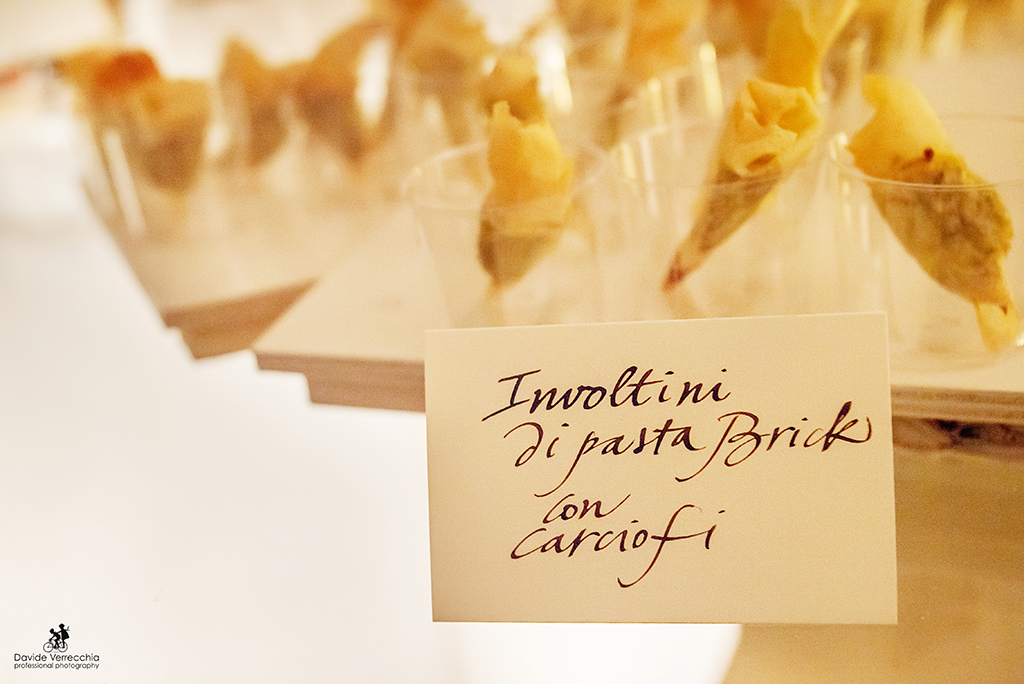 Involtini
di pasta Brick
con
carciofi
Davide Verrecchia
professional photography